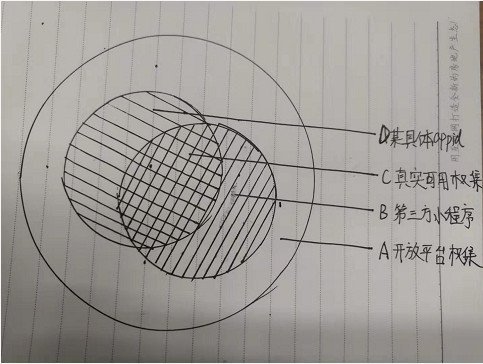 D某具体appid
C 真实可用权集
B 第三方小程序
A 开放平台权集